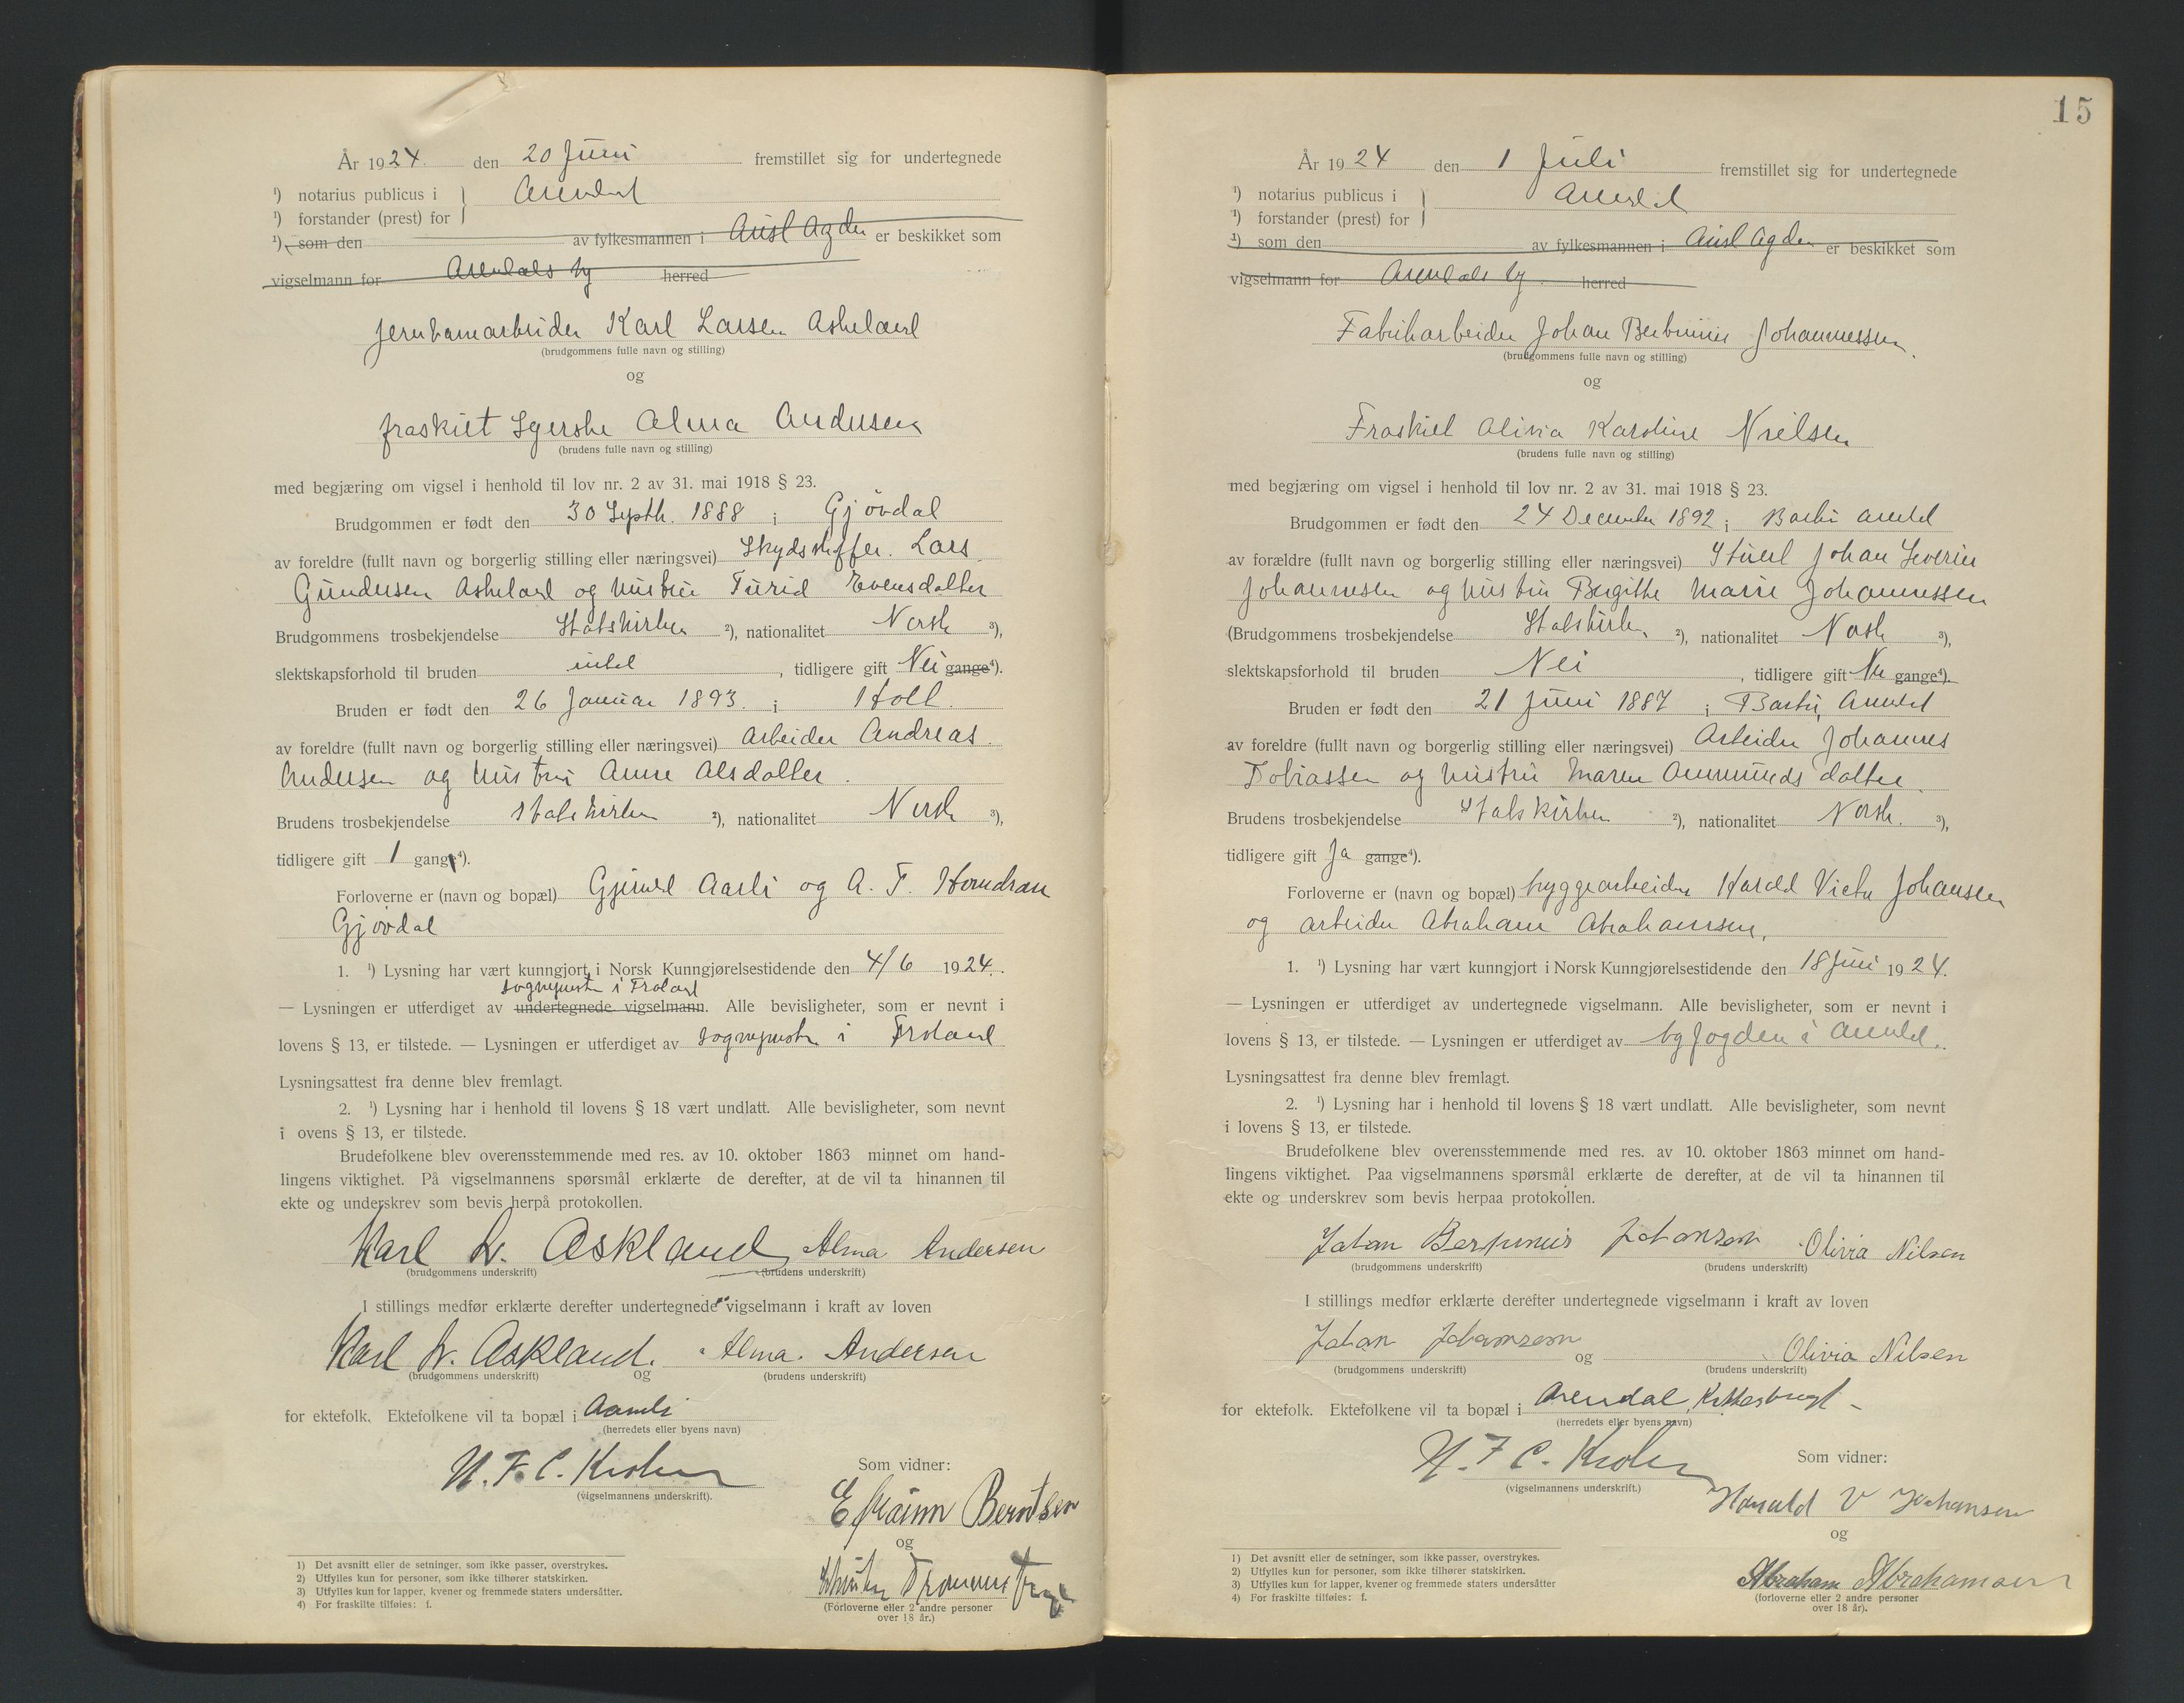 År 1924 den 20 Juni fremstillet sig for undertegnede
¹) notarius publicus i } Arendal
¹) forstander (prest) for
¹) som den av fylkesmannen i Aust Agder er beskikket som
vigselmann for Arendals by herred
Jernbanearbeider Karl Larsen Askeland
(brudgommens fulle navn og stilling)
og
fraskilt Syerske Alma Andersen
(brudens fulle navn og stilling)
med begjæring om vigsel i henhold til lov nr. 2 av 31. mai 1918 § 23.
Brudgommen er født den 30 Septb. 1888 i Gjövdal
av foreldre (fullt navn og borgerlig stilling eller næringsvei) Skydsskaffer Lars
Gundersen Askeland og hustru Turid Evensdatter
Brudgommens trosbekjendelse Statskirken ²), nationalitet Norsk ³),
slektskapsforhold til bruden intet, tidligere gift Nei gange⁴).
Bruden er født den 26 Januar 1893. i Holt.
av foreldre (fullt navn og borgerlig stilling eller næringsvei) Arbeider Andreas
Andersen og hustru Anne Alsdatter.
Brudens trosbekjendelse Statskirken ²), nationalitet Norsk ³),
tidligere gift 1 gang⁴).
Forloverne er (navn og bopæl) Gjerulf Aasli og A. T.
Gjövdal
1. ¹) Lysning har vært kunngjort i Norsk Kunngjørelsestidende den 4/6 1924.
sogneprest i Froland
— Lysningen er utferdiget av undertegnede vigselmann. Alle bevisligheter, som er nevnt i
lovens § 13, er tilstede. — Lysningen er utferdiget av sogneprest i Froland
Lysningsattest fra denne blev fremlagt.
2. ¹) Lysning har i henhold til lovens § 18 vært undlatt. Alle bevisligheter, som nevnt
i ovens § 13, er tilstede.
Brudefolkene blev overensstemmende med res. av 10. oktober 1863 minnet om hand-
lingens viktighet. På vigselmannens spørsmål erklærte de derefter, at de vil ta hinannen til
ekte og underskrev som bevis herpå protokollen.
Karl L. Askland Alma Andersen
(brudgommens underskrift) (brudens underskrift)
I stillings medfør erklærte derefter undertegnede vigselmann i kraft av loven
Karl L. Askland. Alma. Andersen
(brudgommens underskrift) og (brudens underskrift)
for ektefolk. Ektefolkene vil ta bopæl i Aamli
(herredets eller byens navn)
N. F. C. Krohn
(vigselmannens underskrift).
Som vidner:
Efraim Berntsen
og
(Forloverne eller 2 andre personer
over 18 år.)
1) Det avsnitt eller de setninger, som ikke passer, overstrykes.
2) Utfylles kun for personer, som ikke tilhører statskirken.
3) Utfylles kun for lapper, kvener og fremmede staters undersåtter.
4) For fraskilte tilføies: f.
15
År 1924 den 1 Juli fremstillet sig for undertegnede
¹) notarius publicus i } Arendal
¹) forstander (prest) for
¹) som den av fylkesmannen i Aust Agder er beskikket som
vigselmann for Arendals by herred
Fabrikarbeider Johan Johannessen
(brudgommens fulle navn og stilling)
og
Fraskilt Olivia Karoline Nielsen
(brudens fulle navn og stilling)
med begjæring om vigsel i henhold til lov nr. 2 av 31. mai 1918 § 23.
Brudgommen er født den 24 December 1892 i Barbu Arendal
av forældre (fullt navn og borgerlig stilling eller næringsvei) Stuert Johan Severin
Johannesen og hustru Birgithe Marie Johannessen
(Brudgommens trosbekjendelse Statskirken ²), nationalitet Norsk ³),
slektskapsforhold til bruden Nei, tidligere gift Nei gange⁴).
Bruden er født den 21 Juni 1887 i Barbu, Arendal
av foreldre (fullt navn og borgerlig stilling eller næringsvei) Arbeider Johannes
Tobiassen og hustru Maren Ammundsdatter.
Brudens trosbekjendelse Statskirken ²), nationalitet Norsk. ³),
tidligere gift Ja gange⁴).
Forloverne er (navn og bopæl) bryggearbeider Harald Victor Johansen
og arbeider Abraham Abrahamsen.
1. ¹) Lysning har vært kunngjort i Norsk Kunngjørelsestidende den 18 Juni 1924.
— Lysningen er utferdiget av undertegnede vigselmann. Alle bevisligheter, som er nevnt i
lovens § 13, er tilstede. — Lysningen er utferdiget av byfogden i Arendal.
Lysningsattest fra denne blev fremlagt.
2. ¹) Lysning har i henhold til lovens § 18 vært undlatt. Alle bevisligheter, som nevnt
i lovens § 13, er tilstede.
Brudefolkene blev overensstemmende med res. av 10. oktober 1863 minnet om hand-
lingens viktighet. Paa vigselmannens spørsmål erklærte de derefter, at de vil ta hinannen til
ekte og underskrev som bevis herpaa protokollen.
Johan Johansen Olivia Nilsen
(brudgommens underskrift) (brudens underskrift)
I stillings medfør erklærte derefter undertegnede vigselmann i kraft av loven
Johan Johansen Olivia Nilsen
(brudgommens underskrift) og (brudens underskrift)
for ektefolk. Ektefolkene vil ta bopæl i Arendal, Kittelsbugt
(herredets eller byens navn)
N. F. C. Krohn
(vigselmannens underskrift.)
Som vidner:
Harald V Johansen
og
Abraham Abrahamsen
(forloverne eller 2 andre personer
over 18 år).
1) Det avsnitt eller de setninger, som ikke passer, overstrykes.
2) Utfylles kun for personer, som ikke tilhører statskirken.
3) Utfylles kun for lapper, kvener og fremmede staters undersåtter
4) For fraskilte tilføies: f.